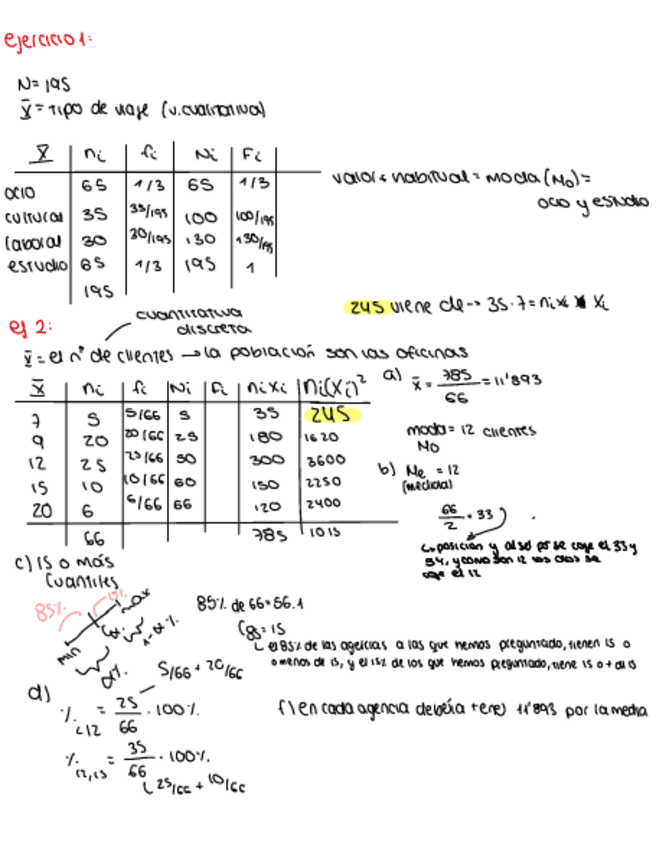 ejercicio 1:
N= 195
X̄= Tipo de viaje (v.cualitativa)
X̄ ni fi Ni Fi
ocio 65 1/3 65 1/3
cultural 35 35/195 100 100/195
laboral 30 30/195 130 130/195
estudio 65 1/3 195 1
195
valor + habitual = moda (Mo) =
ocio y estudio
245 viene de -> 35·7 = ni xi xi
ej 2:
cuantitativa
discreta
X̄ = el nº de clientes → la población son las oficinas
X̄ ni fi Ni Fi ni xi ni(xi)²
7 5 5/66 5 35 245
9 20 20/66 25 180 1620
12 25 25/66 50 300 3600
15 10 10/66 60 150 2250
20 6 6/66 66 120 2400
66 785 1015
a) x̄ = 785/66 = 11'893
moda = 12 clientes
Mo
b) Me = 12
(mediana)
66/2 = 33
↳ posición y al ser par se coge el 33 y
34, y como son 12 los dos se
coge el 12
c) 15 o más
Cuantiles
85% 15%
min max
α% 1-α%
85% de 66= 56.1
C85 = 15
↳ el 85% de las agencias a las que hemos preguntado, tienen 15 o
o menos de 15, y el 15% de los que hemos preguntado, tiene 15 o + de 15
d)
5/66 + 20/66
%<12 = 25/66 · 100%
%12,15 = 35/66 · 100%
↳ 25/66 + 10/66
f) en cada agencia debería tener 11'893 por la media